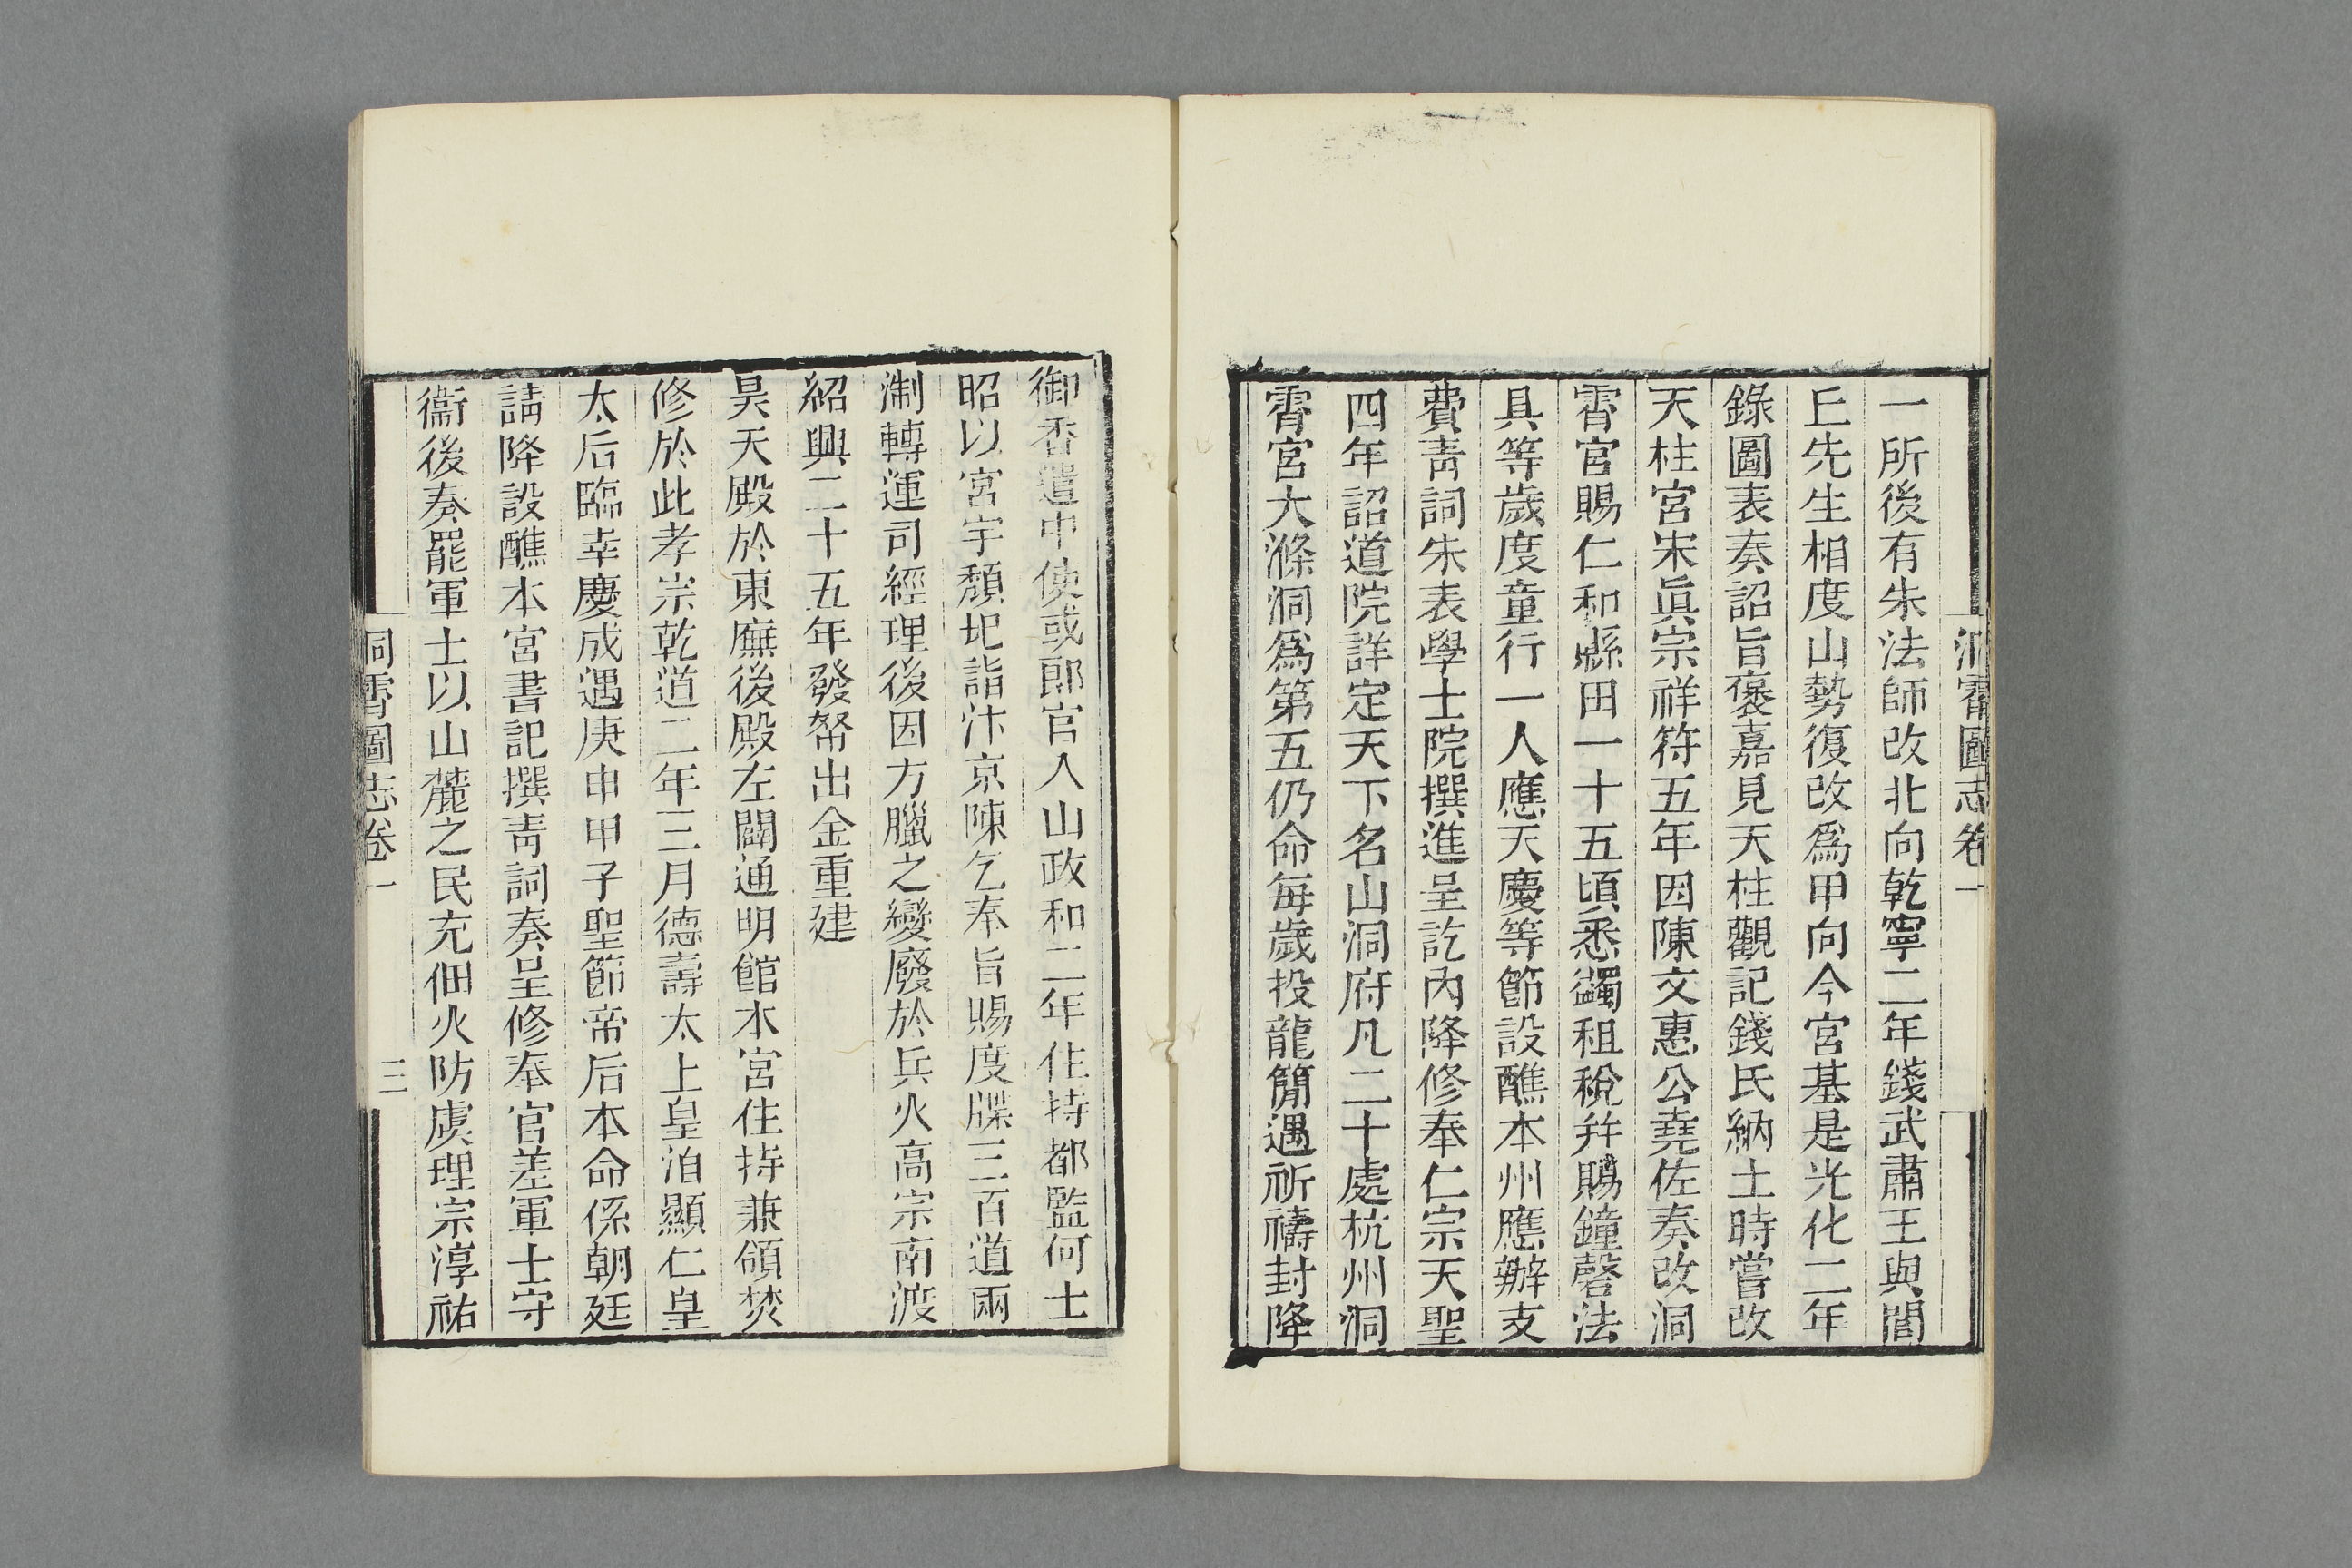 洞霄圖志卷一
一所後有朱法師改北向乾寧二年錢武肅王與閭
丘先生相度山勢復改爲甲向今宮基是光化二年
錄圖表奏詔旨褒嘉見天柱觀記錢氏納土時嘗改
天柱宮宋眞宗祥符五年因陳文惠公堯佐奏改洞
霄宮賜仁和縣田一十五頃悉蠲租稅并賜鐘磬法
具等歲度童行一人應天慶等節設醮本州應辦支
費靑詞朱表學士院撰進呈訖內降修奉仁宗天聖
四年詔道院詳定天下名山洞府凡二十處杭州洞
霄宮大滌洞爲第五仍命每歲投龍簡遇祈禱封降
御香遣中使或郎官入山政和二年住持都監何士
昭以宮宇頹圯詣汴京陳乞奉旨賜度牒三百道兩
淛轉運司經理後因方臘之變廢於兵火高宗南渡
紹興二十五年發帑出金重建
昊天殿於東廡後殿左闢通明館本宮住持兼領焚
修於此孝宗乾道二年三月德壽太上皇洎顯仁皇
太后臨幸慶成遇庚申甲子聖節帝后本命係朝廷
請降設醮本宮書記撰靑詞奏呈修奉官差軍士守
衞後奏罷軍士以山麓之民充佃火防虞理宗淳祐
洞霄圖志卷一
三